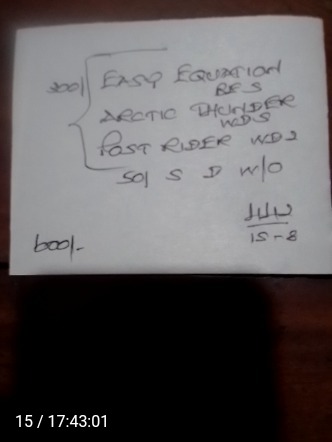 300/ EASY EQUATION
RES
ARCTIC THUNDER
WDS
POST RIDER WDS
50/ S D W/O
15-8
600/-
15 / 17:43:01